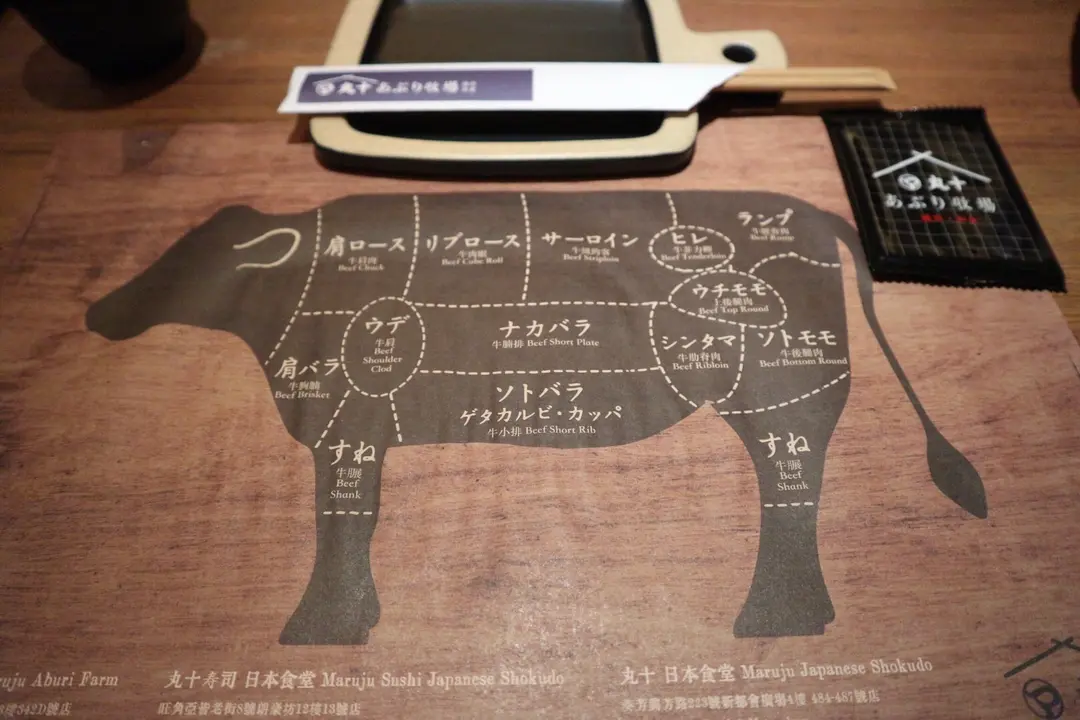 丸十 あぶり牧場
丸十
あぶり牧場
肩ロース
牛肩肉
Beef Chuck
リブロース
牛肉眼
Beef Cube Roll
サーロイン
Beef Striploin
ヒレ
牛菲力
Beef Tenderloin
ランプ
Beef Rump
ウチモモ
上後腿肉
Beef Top Round
ウデ
牛肩
Beef
Shoulder
Clod
ナカバラ
牛腩排 Beef Short Plate
シンタマ
牛肋脊肉
Beef Ribloin
ソトモモ
牛後腿肉
Beef Bottom Round
肩バラ
牛胸腩
Beef Brisket
ソトバラ
ゲタカルビ・カッパ
牛小排 Beef Short Rib
すね
牛𦟌
Beef
Shank
すね
牛𦟌
Beef
Shank
ruju Aburi Farm
丸十寿司 日本食堂 Maruju Sushi Japanese Shokudo
丸十 日本食堂 Maruju Japanese Shokudo
樓342D號店
旺角亞皆老街8號朗豪坊12樓13號店
葵芳興芳路223號新都會廣場4樓 484-487號店